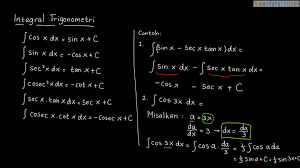 Integral Trigonometri
∫cos x dx = sin x + C
∫sin x dx = -cos x + C
∫sec²x dx = tan x + C
∫cosec²x dx = -cot x + C
∫sec x. tan x dx = Sec x + C
∫cosec x. cot x dx = -cosec x + C
Contoh:
1. ∫(sin x - sec x tan x) dx =
∫sin x dx - ∫sec x tan x dx =
-cos x - sec x + C
2. ∫cos 3x dx =
Misalkan : a = 3x
da/dx = 3 → dx = da/3
∫cos 3x dx = ∫cos a da/3 = 1/3 ∫cos a da
= 1/3 sin a + C = 1/3 sin 3x + C